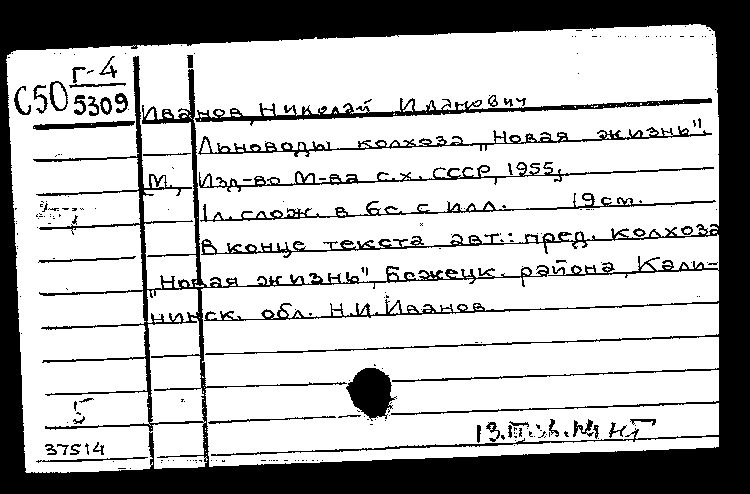 Г-4
С50 5309
Иванов, Николай Иванович
Льноводы колхоза „Новая жизнь".
[М., Изд-во М-ва с.х. СССР, 1955]
1л. слож. в 6с. с илл. 19см.
В конце текста авт.: пред. колхоза
„Новая жизнь", Бежецк. района, Кали-
нинск. обл. Н.И.Иванов.
5
37514